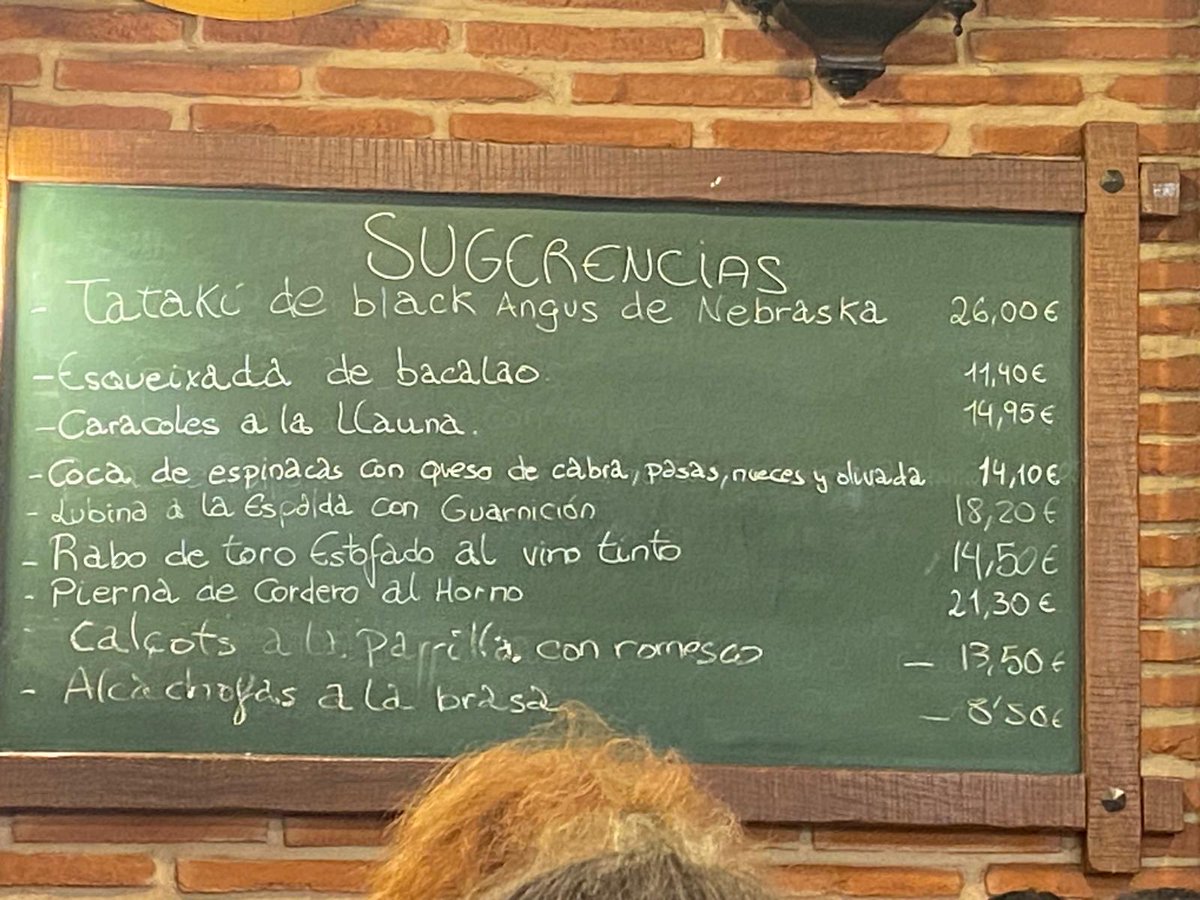 SUGERENCiAS
- Tataki de black Angus de Nebraska 26,00€
- Esqueixada de bacalao 11,40€
- Caracoles a la LLauna. 14,95€
- Coca de espinacas con queso de cabra, pasas, nueces y olivada 14,10€
- Lubina a la Espalda con Guarnición 18,20€
- Rabo de toro Estofado al vino tinto 14,50€
- Pierna de Cordero al Horno 21,30€
- Calçots a la parrilla con romesco - 13,50€
- Alcachofas a la brasa - 8'50€